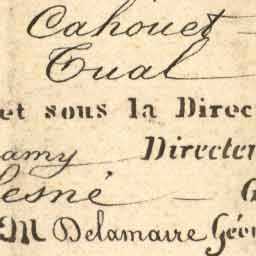 Cahouet
Tual
et sous la Direc
amy Directe
esné G
M Delamaire Géo